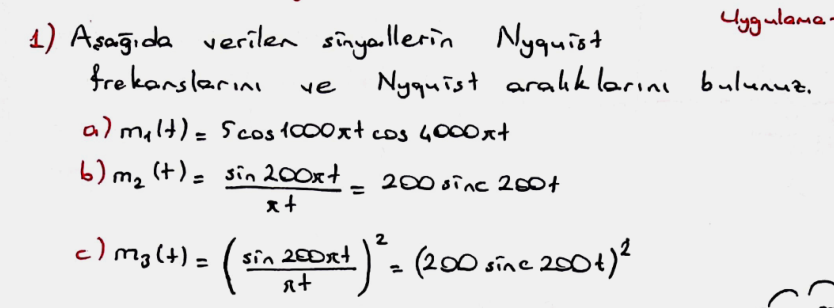 Uygulama-
1) Aşağıda verilen sinyallerin Nyquist
frekanslarını ve Nyquist aralıklarını bulunuz.
a) m₁(t) = 5cos1000πt cos 4000πt
b) m₂(t) = sin 200πt / πt = 200 sinc 200t
c) m₃(t) = (sin 200πt / πt)² = (200 sinc 200t)²